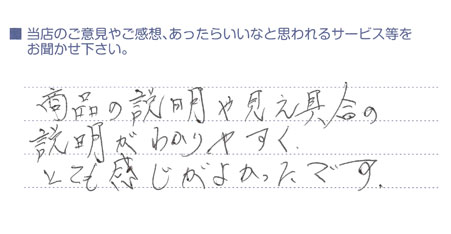 ■ 当店のご意見やご感想、あったらいいなと思われるサービス等を
お聞かせ下さい。
商品の説明や見え具合の
説明がわかりやすく.
とても感じがよかったです.